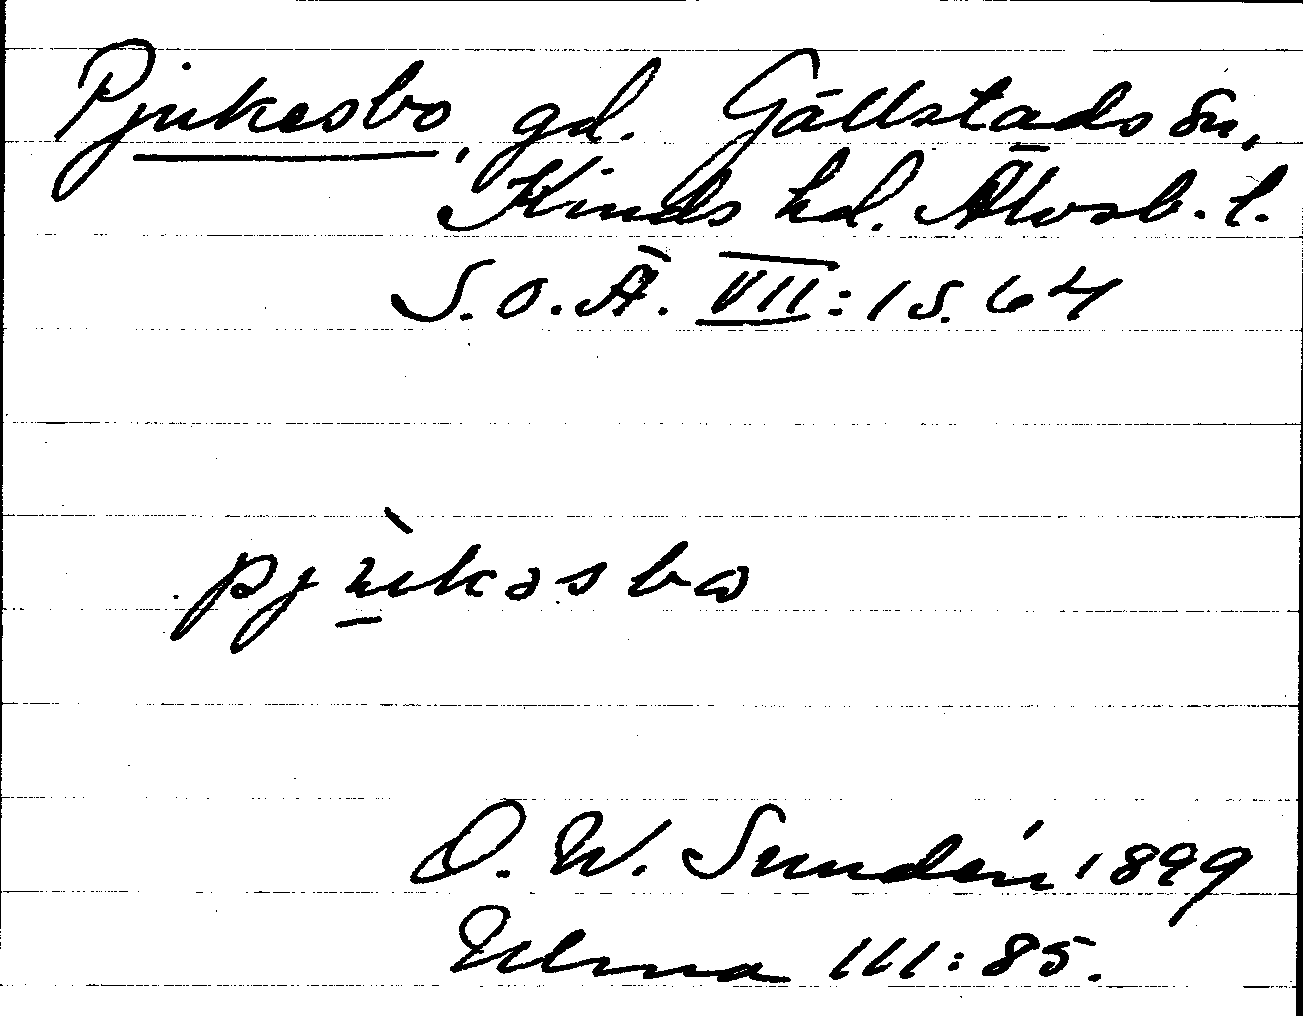 Pjukesbo, gd. Gällstads sn,
Kinds hd. Älvsb. l.
S.O.Ä. VII:1 S. 64
pjùkəsbo
O. W. Sundén 1899
Ulma 111:85.